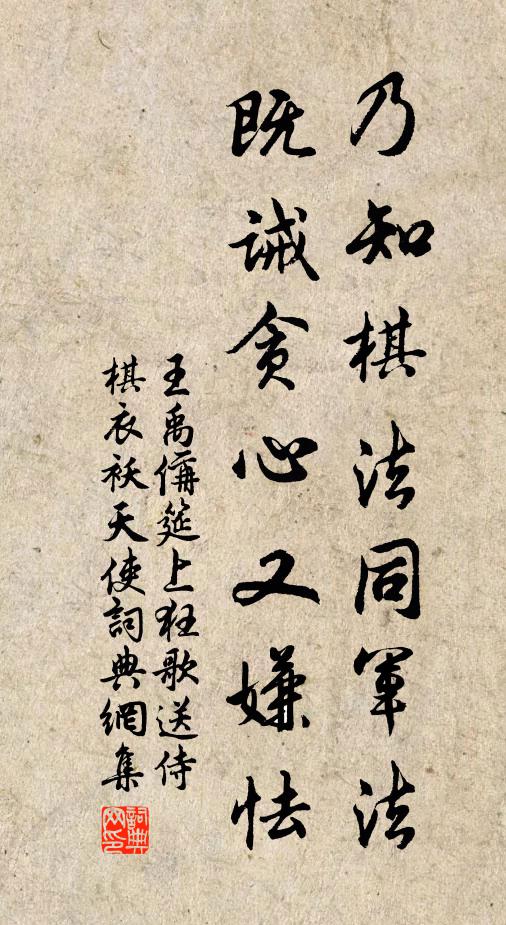 乃知棋法同軍法
既誡貪心又嫌怯
王禹偁筵上狂歌送侍
棋衣袄天使詞典網集
詞典
网印